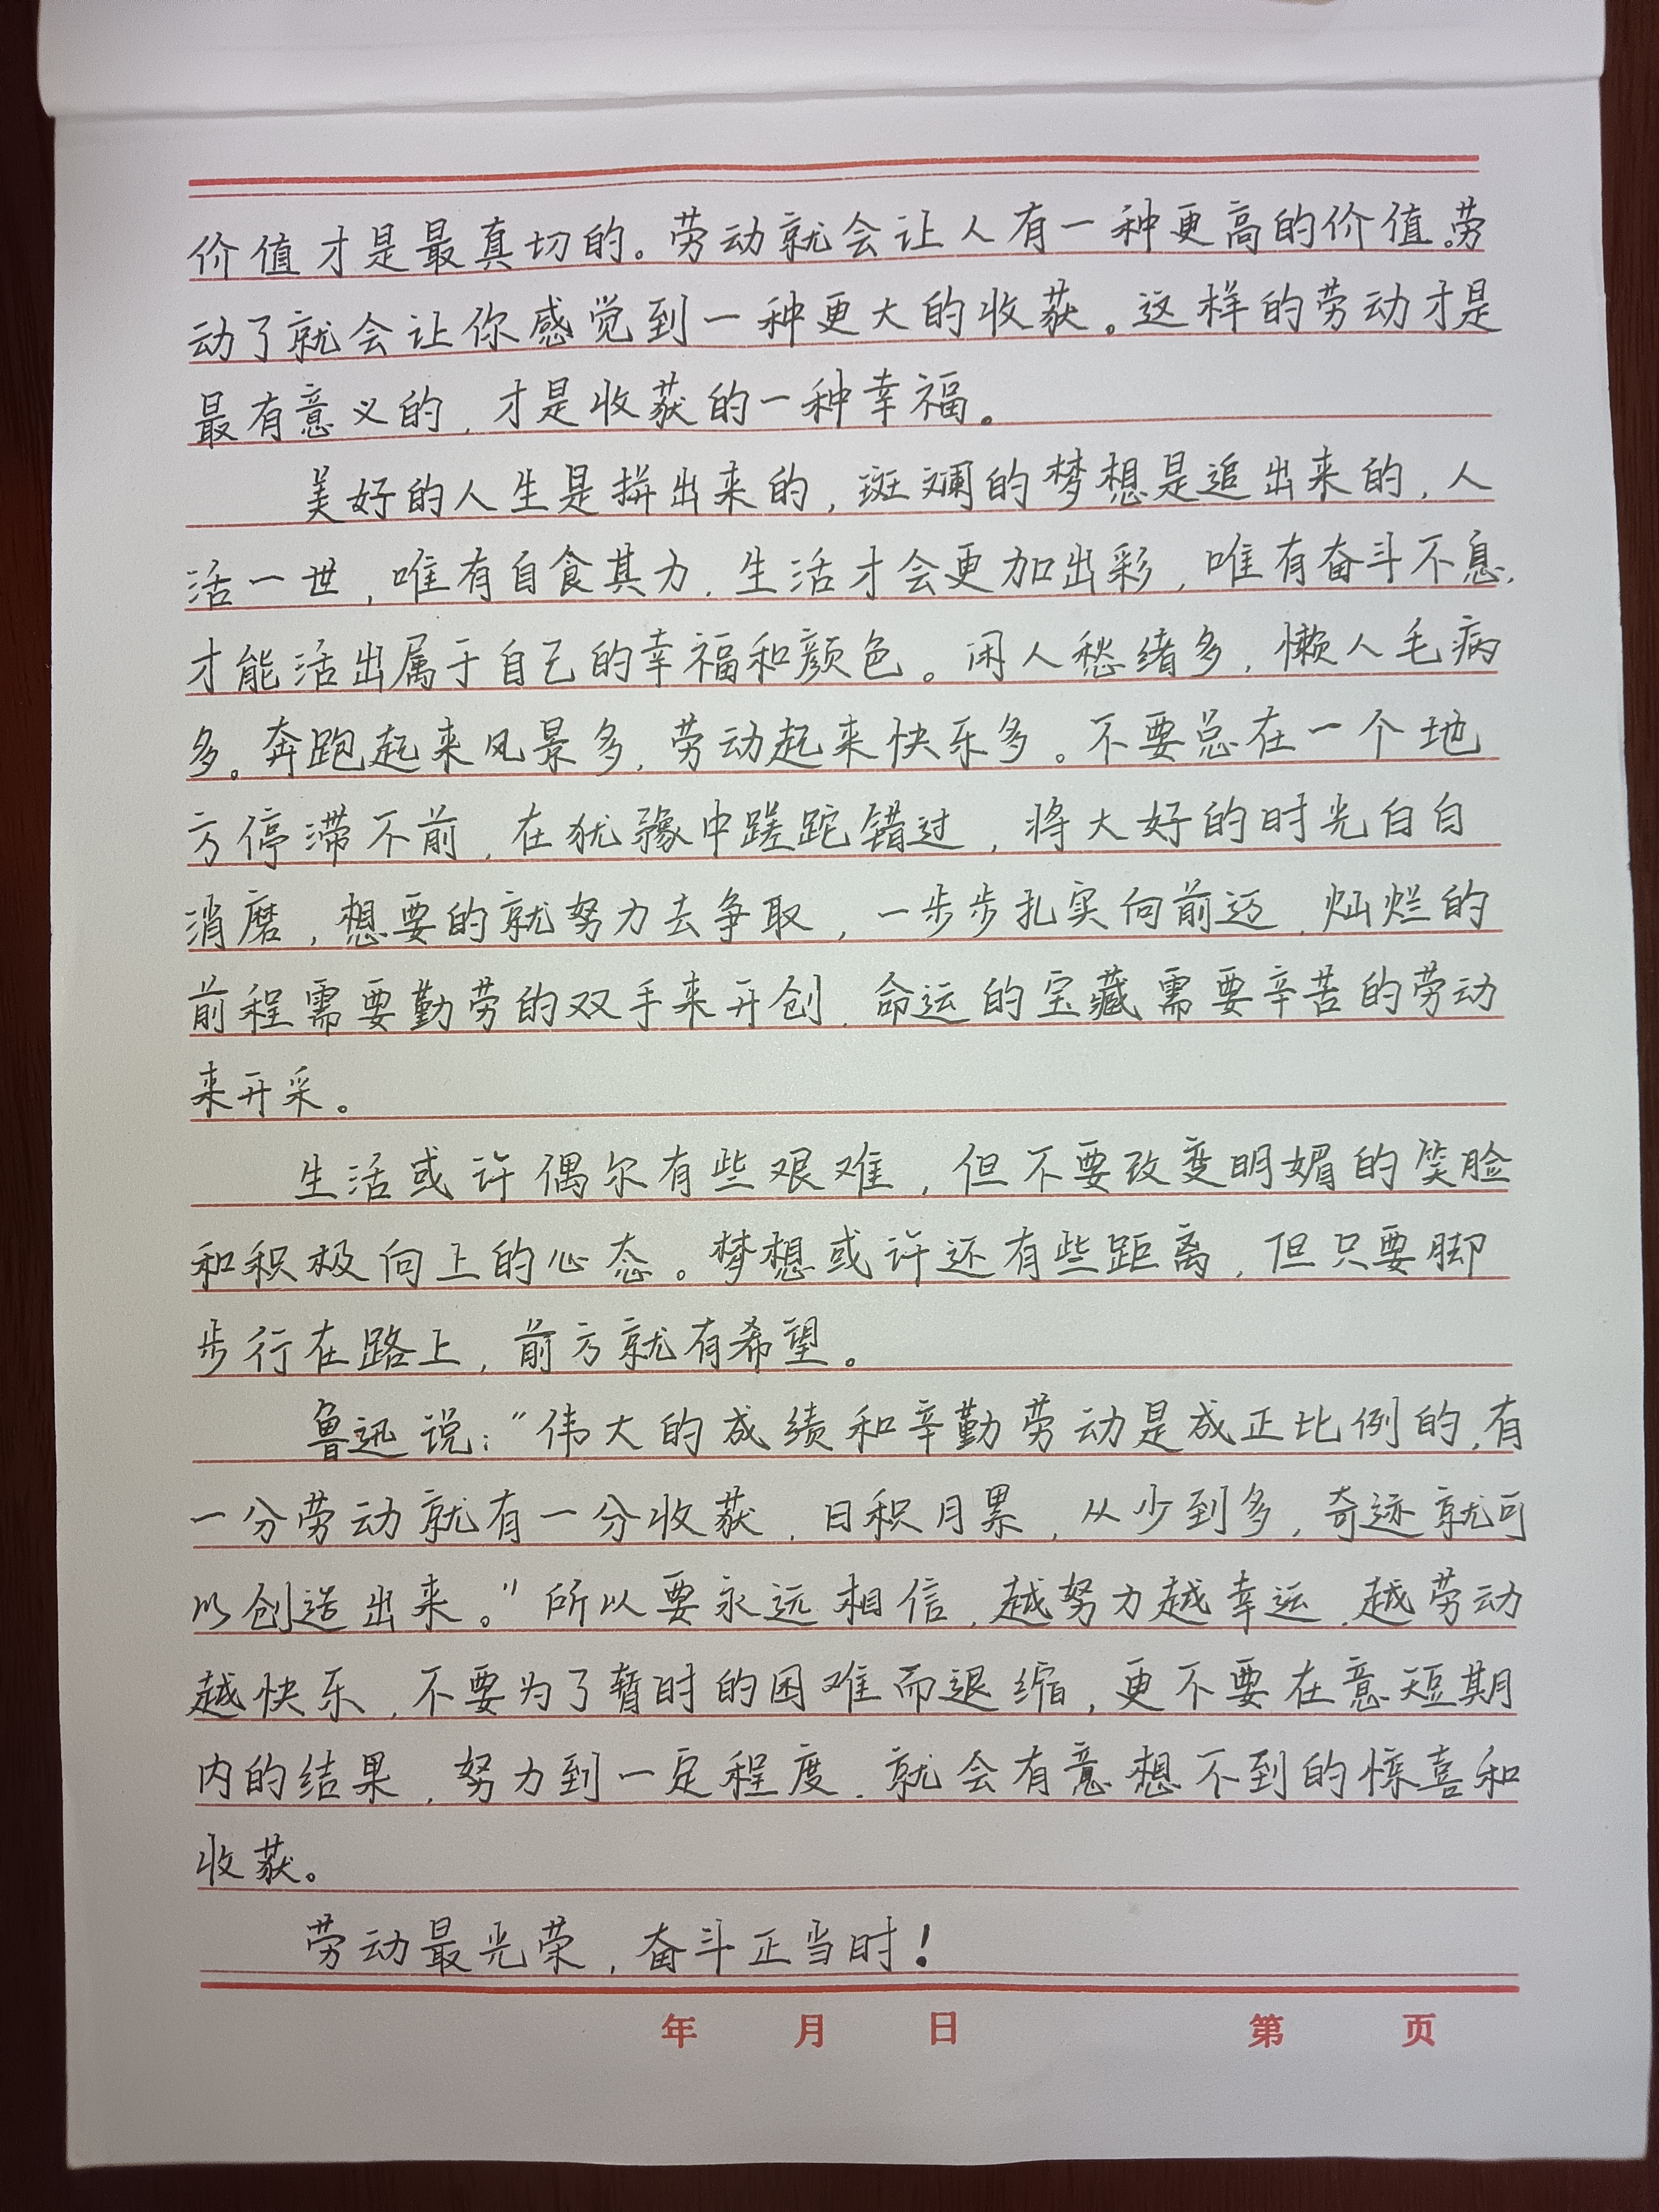 价值才是最真切的。劳动就会让人有一种更高的价值。劳
动了就会让你感觉到一种更大的收获。这样的劳动才是
最有意义的，才是收获的一种幸福。
美好的人生是拼出来的，斑斓的梦想是追出来的，人
活一世，唯有自食其力，生活才会更加出彩，唯有奋斗不息，
才能活出属于自己的幸福和颜色。闲人愁绪多，懒人毛病
多。奔跑起来风景多，劳动起来快乐多。不要总在一个地
方停滞不前，在犹豫中蹉跎错过，将大好的时光白白
消磨，想要的就努力去争取，一步步扎实向前迈，灿烂的
前程需要勤劳的双手来开创，命运的宝藏需要辛苦的劳动
来开采。
生活或许偶尔有些艰难，但不要改变明媚的笑脸
和积极向上的心态。梦想或许还有些距离，但只要脚
步行在路上，前方就有希望。
鲁迅说：“伟大的成绩和辛勤劳动是成正比例的，有
一分劳动就有一分收获，日积月累，从少到多，奇迹就可
以创造出来。”所以要永远相信，越努力越幸运，越劳动
越快乐，不要为了暂时的困难而退缩，更不要在意短期
内的结果，努力到一定程度，就会有意想不到的惊喜和
收获。
劳动最光荣，奋斗正当时！
年 月 日 第 页